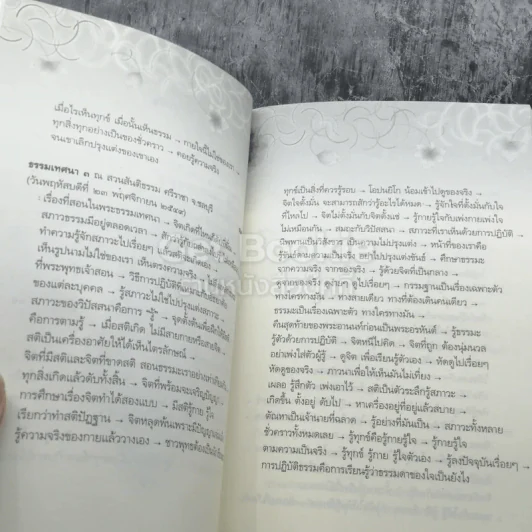 เมื่อไรเห็นทุกข์ เมื่อนั้นเห็นธรรม → กายใจนี้ไม่ใช่ของเรา →
ทุกสิ่งทุกอย่างเป็นของชั่วคราว → คอยรู้ความจริง
จนเขาเลิกปรุงแต่งของเขาเอง
ธรรมเทศนา ๓ ณ สวนสันติธรรม ศรีราชา จ.ชลบุรี
(วันพฤหัสบดีที่ ๒๓ พฤศจิกายน ๒๕๔๙)
: เรื่องที่สอนในพระธรรมเทศนา → จิตเกิดที่
สภาวธรรมมีอยู่ตลอดเวลา →
ทำความรู้จักสภาวะไปเรื่อยๆ
เห็นรูปนามไม่ใช่ของเรา → เห็นตรงความจริง
ที่พระพุทธเจ้าสอน → วิธีการปฏิบัติ
ของแต่ละบุคคล → รู้สภาวะไม่ใช่ไปปรุงแต่งสภาวะ
สภาวะของวิปัสสนาคือการ "รู้" →
คือการตามรู้ → เมื่อสติเกิด
สติเป็นเครื่องอาศัยให้ได้เห็นไตรลักษณ์
จิตที่มีสติและจิตที่ขาดสติ สอนธรรมะเรา
ทุกสิ่งเกิดแล้วดับทั้งสิ้น → จิตที่พร้อมจะเจริญ
การศึกษาเรื่องจิตทำได้สองแบบ →
เรียกว่าทำสติปัฏฐาน → จิตหลุดพ้นเพราะมีปัญญา
รู้ความจริงของกายแล้ววางเอง → ชาวพุทธต้อง
ทุกข์เป็นสิ่งที่ควรรู้รอบ → โอปนยิโก น้อมเข้าไปดูของจริง →
จิตใจตั้งมั่น จะสามารถสักว่ารู้อะไรได้หมด → รู้จักใจที่ตั้งมั่นกับใจ
ที่ไหลไป → จิตไม่ตั้งมั่นกับจิตตั้งแช่ → รู้กายรู้ใจกับเพ่งกายเพ่งใจ
ไม่เหมือนกัน → สมถะกับวิปัสสนา → สภาวะที่เราเห็นด้วยการปฏิบัติ →
นิพพานเป็นวิสังขาร เป็นความไม่ปรุงแต่ง → หน้าที่ของเราคือ
รู้ขันธ์ตามความเป็นจริง อย่าไปปรุงแต่งขันธ์ → ศึกษาธรรมะ
จากความจริง จากของจริง → รู้ด้วยจิตที่เป็นกลาง →
ดูไปเรื่อยๆ → กรรมฐานเป็นเรื่องเฉพาะตัว
ทางใครทางมัน → ทางสายเดียว ทางที่ต้องเดินคนเดียว →
ธรรมะเป็นเรื่องเฉพาะตัว ทางใครทางมัน →
คืนสุดท้ายของพระอานนท์ก่อนเป็นพระอรหันต์ → รู้ธรรมะ
รู้ตัวด้วยการปฏิบัติ → จิตหนีไปคิด → จิตที่ถูก ต้องนุ่มนวล
อย่าเพ่งใส่ตัวผู้รู้ → ดูจิต เพื่อเรียนรู้ตัวเอง → หัดดูไปเรื่อยๆ
หัดดูของจริง → ภาวนาเพื่อให้เห็นมันไม่เที่ยง →
เผลอ รู้สึกตัว เพ่งเอาไว้ → สติเป็นตัวระลึกรู้สภาวะ →
เกิดขึ้น ตั้งอยู่ ดับไป → หาเครื่องอยู่ที่อยู่แล้วสบาย →
ตัณหาเป็นเจ้านายที่ฉลาด → รู้อย่างที่มันเป็น → สภาวะทั้งหลาย
ชั่วคราวทั้งหมดเลย → รู้ทุกข์คือรู้กายรู้ใจ → รู้กายรู้ใจ
ตามความเป็นจริง → รู้ทุกข์ รู้กาย รู้ใจตัวเอง → รู้ลงปัจจุบันเรื่อยๆ →
การปฏิบัติธรรมคือการเรียนรู้ว่าธรรมดาของใจเป็นยังไง